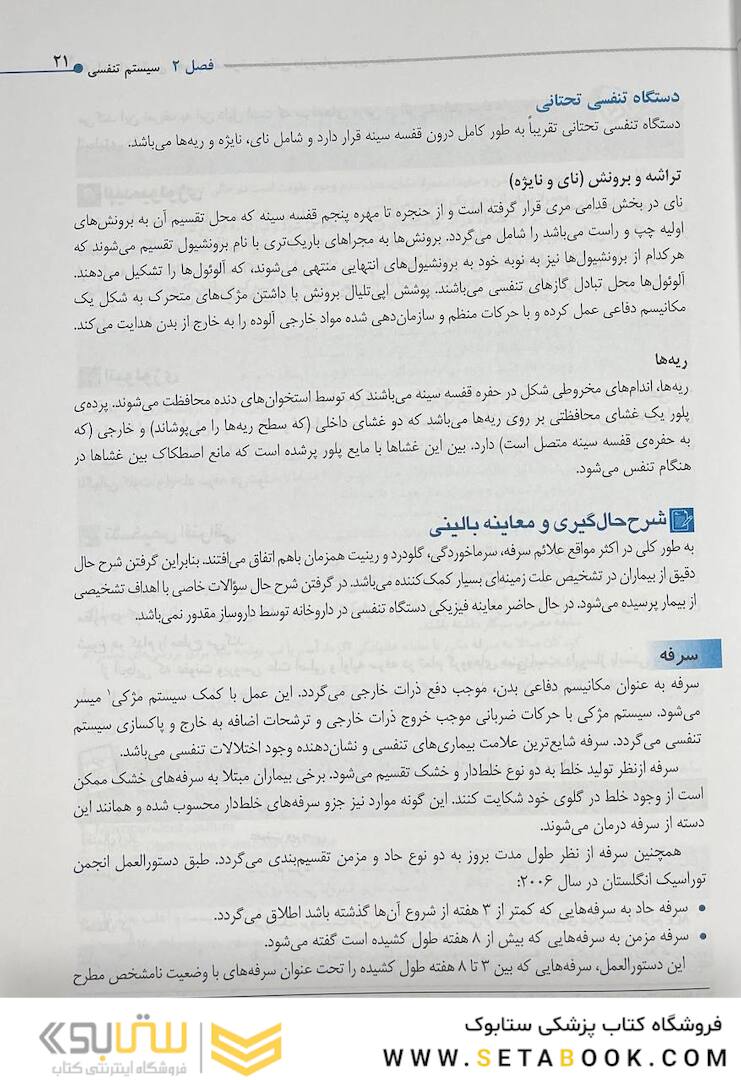 فصل ۲ سیستم تنفسی ۲۱
دستگاه تنفسی تحتانی
دستگاه تنفسی تحتانی تقریباً به طور کامل درون قفسه سینه قرار دارد و شامل نای، نایژه و ریه‌ها می‌باشد.
تراشه و برونش (نای و نایژه)
نای در بخش قدامی مری قرار گرفته است و از حنجره تا مهره پنجم قفسه سینه که محل تقسیم آن به برونش‌های
اولیه چپ و راست می‌باشد را شامل می‌گردد. برونش‌ها به مجراهای باریک‌تری با نام برونشیول تقسیم می‌شوند که
هرکدام از برونشیول‌ها نیز به نوبه خود به برونشیول‌های انتهایی منتهی می‌شوند، که آلوئول‌ها را تشکیل می‌دهند.
آلوئول‌ها محل تبادل گازهای تنفسی می‌باشند. پوشش اپی‌تلیال برونش با داشتن مژک‌های متحرک به شکل یک
مکانیسم دفاعی عمل کرده و با حرکات منظم و سازمان‌دهی شده مواد خارجی آلوده را به خارج از بدن هدایت می‌کند.
ریه‌ها
ریه‌ها، اندام‌های مخروطی شکل در حفره قفسه سینه می‌باشند که توسط استخوان‌های دنده محافظت می‌شوند. پرده‌ی
پلور یک غشای محافظتی بر روی ریه‌ها می‌باشد که دو غشای داخلی (که سطح ریه‌ها را می‌پوشاند) و خارجی (که
به حفره‌ی قفسه سینه متصل است) دارد. بین این غشاها با مایع پلور پرشده است که مانع اصطکاک بین غشاها در
هنگام تنفس می‌شود.
شرح‌حال‌گیری و معاینه بالینی
به طور کلی در اکثر مواقع علائم سرفه، سرماخوردگی، گلودرد و رینیت همزمان باهم اتفاق می‌افتند. بنابراین گرفتن شرح حال
دقیق از بیماران در تشخیص علت زمینه‌ای بسیار کمک‌کننده می‌باشد. در گرفتن شرح حال سؤالات خاصی با اهداف تشخیصی
از بیمار پرسیده می‌شود. در حال حاضر معاینه فیزیکی دستگاه تنفسی در داروخانه توسط داروساز مقدور نمی‌باشد.
سرفه
سرفه به عنوان مکانیسم دفاعی بدن، موجب دفع ذرات خارجی می‌گردد. این عمل با کمک سیستم مژکی۱ میسر
می‌شود. سیستم مژکی با حرکات ضربانی موجب خروج ذرات خارجی و ترشحات اضافه به خارج و پاکسازی سیستم
تنفسی می‌گردد. سرفه شایع‌ترین علامت بیماری‌های تنفسی و نشان‌دهنده وجود اختلالات تنفسی می‌باشد.
سرفه ازنظر تولید خلط به دو نوع خلط‌دار و خشک تقسیم می‌شود. برخی بیماران مبتلا به سرفه‌های خشک ممکن
است از وجود خلط در گلوی خود شکایت کنند. این گونه موارد نیز جزو سرفه‌های خلط‌دار محسوب شده و همانند این
دسته از سرفه درمان می‌شوند.
همچنین سرفه از نظر طول مدت بروز به دو نوع حاد و مزمن تقسیم‌بندی می‌گردد. طبق دستورالعمل انجمن
توراسیک انگلستان در سال ۲۰۰۶:
• سرفه حاد به سرفه‌هایی که کمتر از ۳ هفته از شروع آن‌ها گذشته باشد اطلاق می‌گردد.
• سرفه مزمن به سرفه‌هایی که بیش از ۸ هفته طول کشیده است گفته می‌شود.
این دستورالعمل، سرفه‌هایی که بین ۳ تا ۸ هفته طول کشیده را تحت عنوان سرفه‌های با وضعیت نامشخص مطرح
فروشگاه کتاب پزشکی ستابوک
WWW.SETABOOK.COM
ستابوک
فروشگاه اینترنتی کتاب